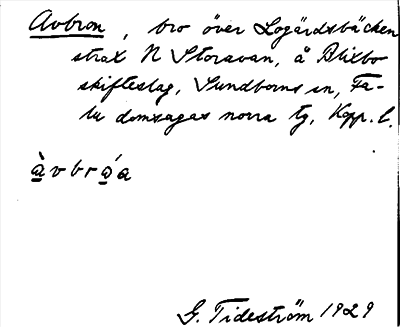 Avbron, bro över Logärdsbäcken
strax N Storavan, å Blixbo
skifteslag, Sundborns sn, Fa-
lu domsagas norra tg, Kopp. l.
à̱ v b r a̱ ́ a
G. Tideström 1929